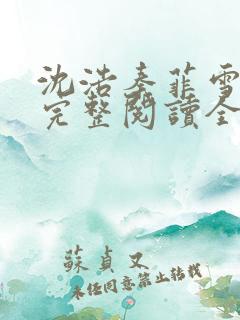 沈浩秦菲雪
完整閱讀全
蘇貞又
未經同意禁止轉載